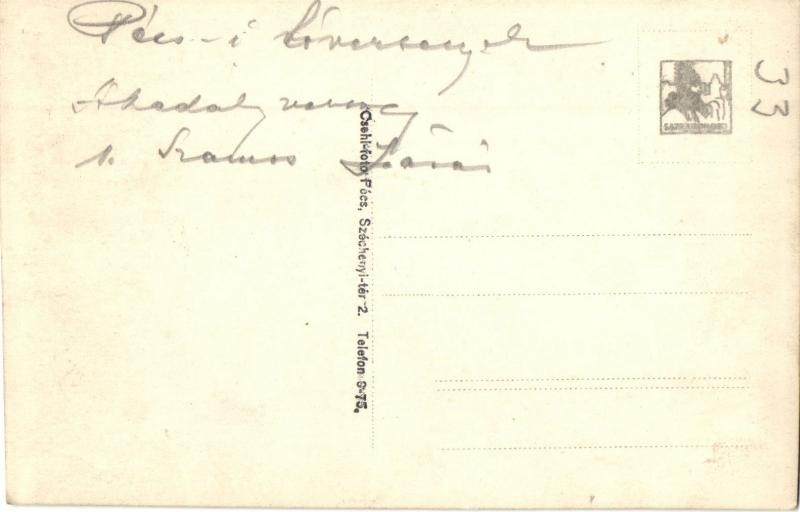 Pécs-i Lóversenyek
Akadályverseny
1. Szamos
Csehi-foto Pécs, Széchenyi-tér 2. Telefon 8-75.
33